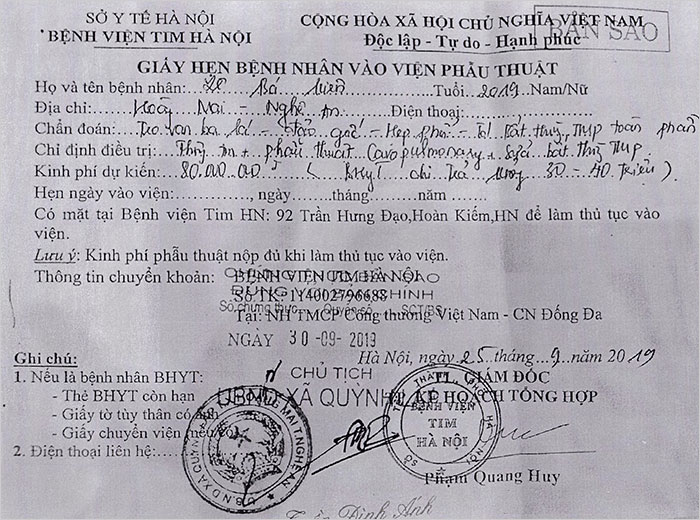 SỞ Y TẾ HÀ NỘI
BỆNH VIỆN TIM HÀ NỘI
CỘNG HÒA XÃ HỘI CHỦ NGHĨA VIỆT NAM
Độc lập - Tự do - Hạnh phúc
BẢN SAO
GIẤY HẸN BỆNH NHÂN VÀO VIỆN PHẪU THUẬT
Họ và tên bệnh nhân: Bá Tuổi: 2019 Nam/Nữ
Địa chỉ: Hoàng Mai - Nghệ An Điện thoại:
Chẩn đoán: Teo van ba lá - - Hẹp phổi - bất thường TMP toàn phần
Chỉ định điều trị: + phẫu thuật Cavopulmonary + Sửa bất thường TMP
Kinh phí dự kiến: 80.000.000đ (BHYT chi trả 30 - 40 triệu)
Hẹn ngày vào viện:............, ngày......tháng.......năm ......
Có mặt tại Bệnh viện Tim HN: 92 Trần Hưng Đạo,Hoàn Kiếm,HN để làm thủ tục vào
viện.
Lưu ý: Kinh phí phẫu thuật nộp đủ khi làm thủ tục vào viện.
Thông tin chuyển khoản: BỆNH VIỆN TIM HÀ NỘI
Số TK: 114002796688
Tại: NH TMCP Công thương Việt Nam - CN Đống Đa
NGÀY 30-09-2019
Hà Nội, ngày 25 tháng 9 năm 2019
Ghi chú:
1. Nếu là bệnh nhân BHYT:
- Thẻ BHYT còn hạn
- Giấy tờ tùy thân có ảnh
- Giấy chuyển viện nếu có
2. Điện thoại liên hệ:
CHỦ TỊCH
UBND XÃ QUỲNH
TL GIÁM ĐỐC
KẾ HOẠCH TỔNG HỢP
BỆNH VIỆN
TIM
HÀ NỘI
Phạm Quang Huy